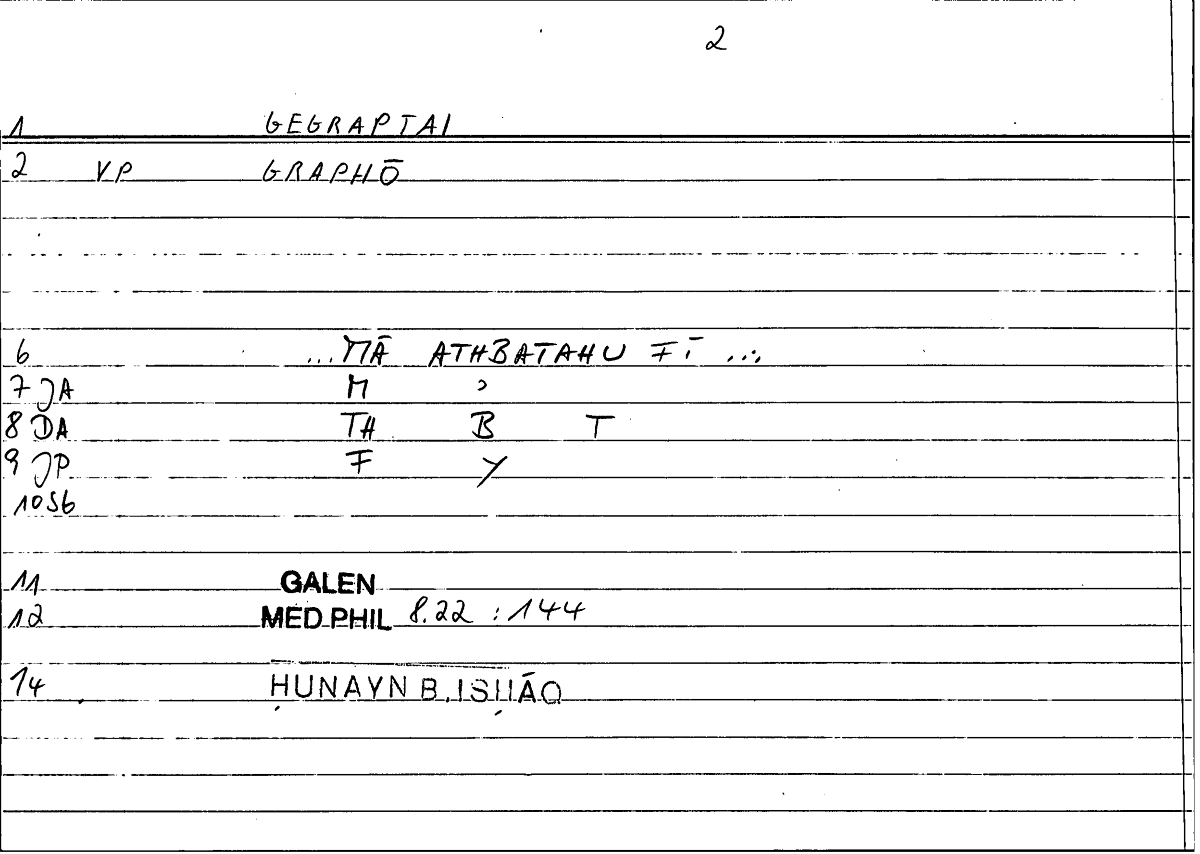 2
1 GEGRAPTAI
2 VP GRAPHŌ
6 ... MĀ ATHBATAHU FĪ ...
7 JA M ʾ
8 DA TH B T
9 JP F Y
10 Sb
11 GALEN
12 MED PHIL 8.22 : 144
14 ḤUNAYN B. ISḤĀQ